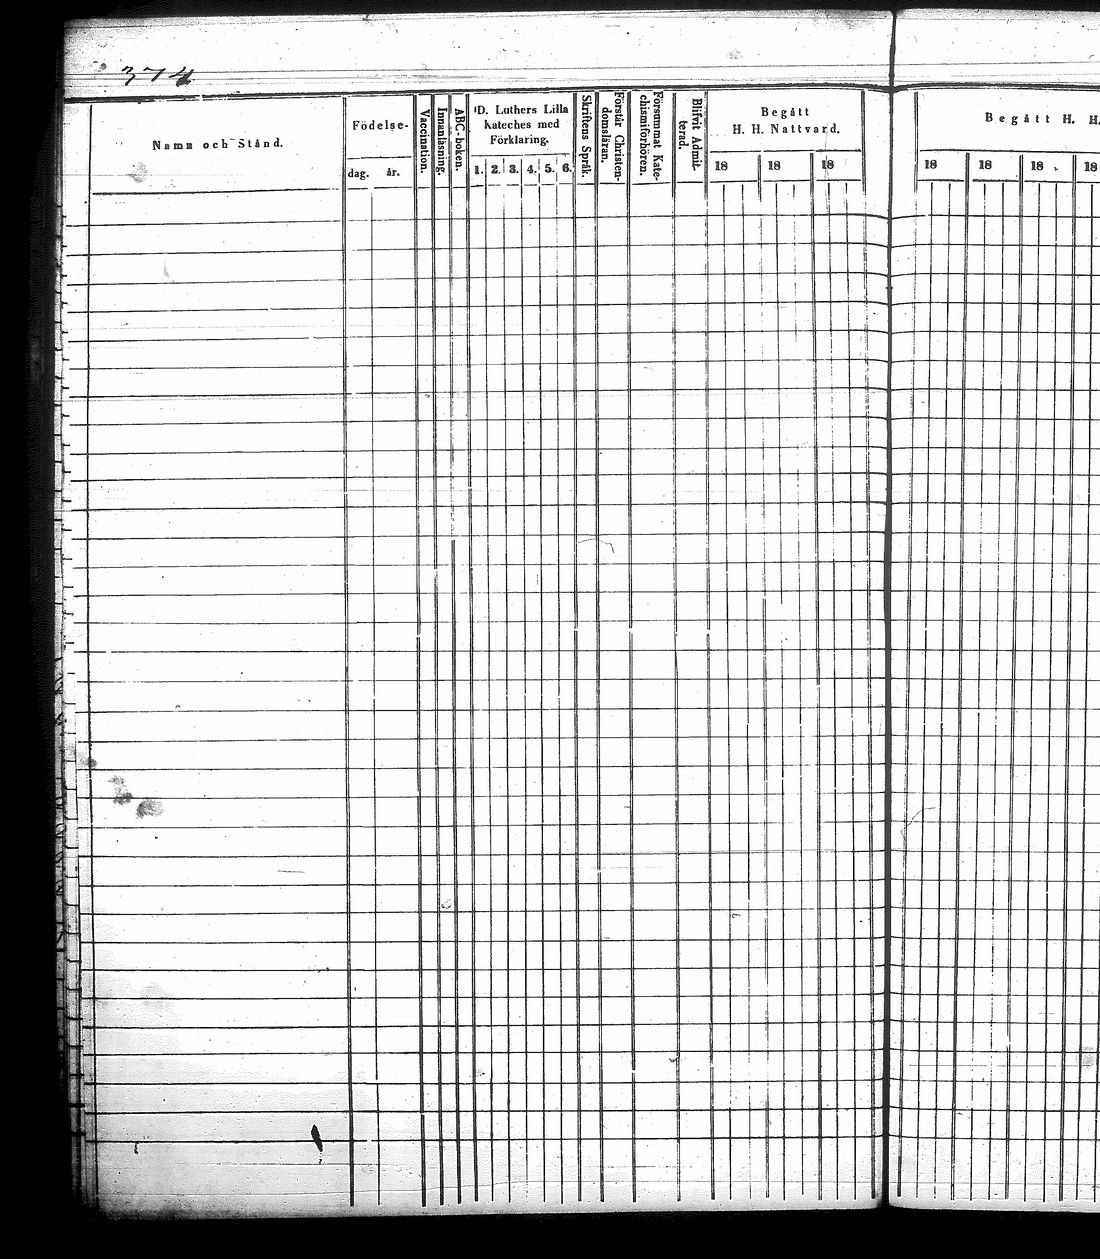 374
Namn och Stånd.
Födelse-
dag. år.
Vaccination.
Innanläsning.
ABC-boken.
D. Luthers Lilla
Kateches med
Förklaring.
1. 2. 3. 4. 5. 6.
Skriftens Språk.
Förstår Christen-
domsläran.
Försummat Kate-
chismiförhören.
Blifvit Admit-
terad.
Begått
H. H. Nattvard.
18 18 18
Begått H. H.
18 18 18 18